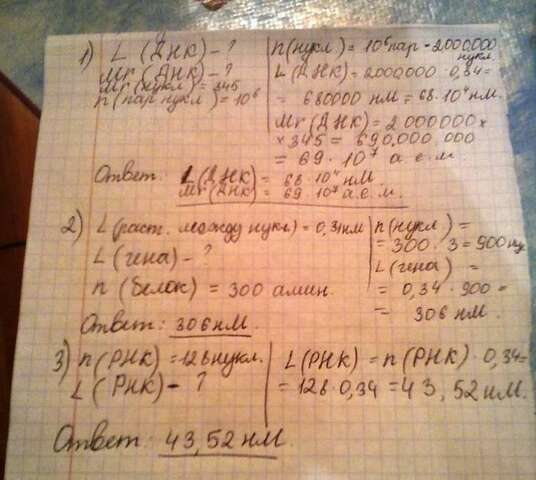 1) L (ДНК) - ?
Mr (ДНК) - ?
Mr (нукл) = 345
n (пар нукл) = 10⁶
n(нукл) = 10⁶ пар = 2000000
нукл.
L (ДНК) = 2000000 · 0,34 =
= 680000 нм = 68 · 10⁴ нм.
Mr (ДНК) = 2000000 ×
× 345 = 690.000.000
= 69 · 10⁷ а.е.м.
Ответ: L (ДНК) = 68 · 10⁴ нм
Mr (ДНК) = 69 · 10⁷ а.е.м.
2) L (раст. между нукл) = 0,34нм
L (гена) - ?
n (белок) = 300 амин.
Ответ: 306 нм.
n (нукл) =
= 300 · 3 = 900 нук
L (гена) =
= 0,34 · 900 =
= 306 нм.
3) n (РНК) = 128 нукл.
L (РНК) - ?
L (РНК) = n (РНК) · 0,34 =
= 128 · 0,34 = 43,52 нм.
Ответ: 43,52 нм.